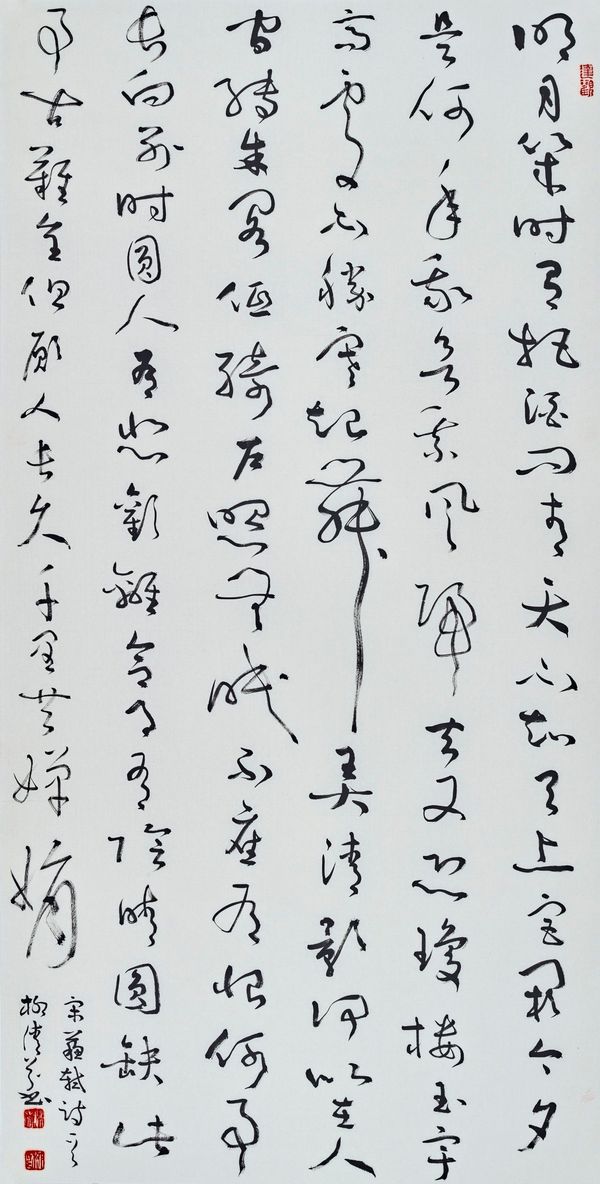 明月幾时有把酒问青天不知天上宫阙今夕
是何年我欲乘風歸去又恐瓊楼玉宇
高處不勝寒起舞弄清影何似在人
间转朱阁低绮户照无眠不應有恨何事
长向别时圆人有悲歡離合月有陰晴圓缺此
事古難全但願人长久千里共嬋娟
宋蘇軾詩
柳清书